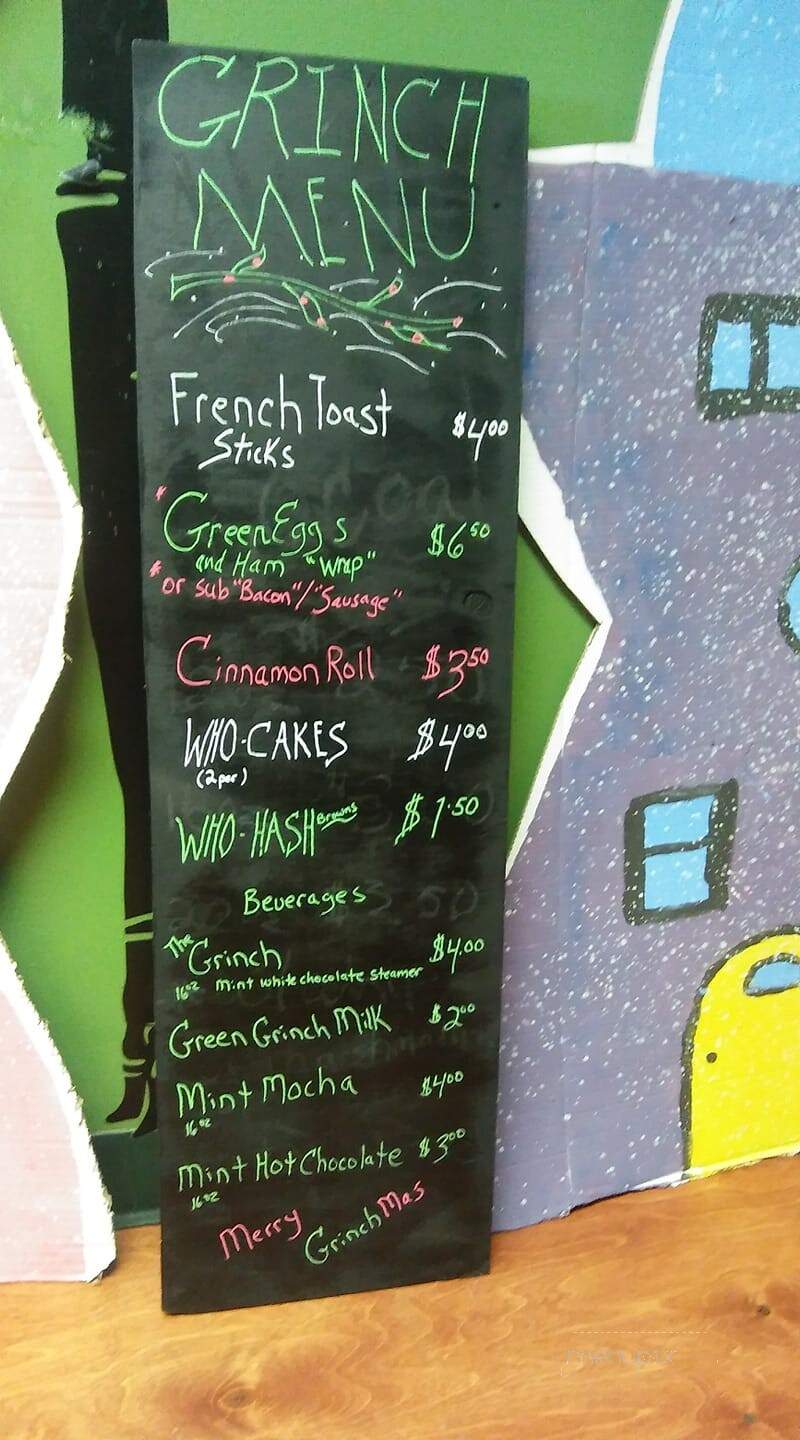 GRINCH
MENU
French Toast $4.00
Sticks
*Green Eggs $6.50
and Ham "Wrap"
*or sub "Bacon"/"Sausage"
Cinnamon Roll $3.50
WHO-CAKES $4.00
(2 per)
WHO-HASH Browns $1.50
Beverages
The Grinch $4.00
16oz Mint white chocolate steamer
Green Grinch Milk $2.00
Mint Mocha $4.00
16oz
Mint Hot Chocolate $3.00
16oz
Merry GrinchMas